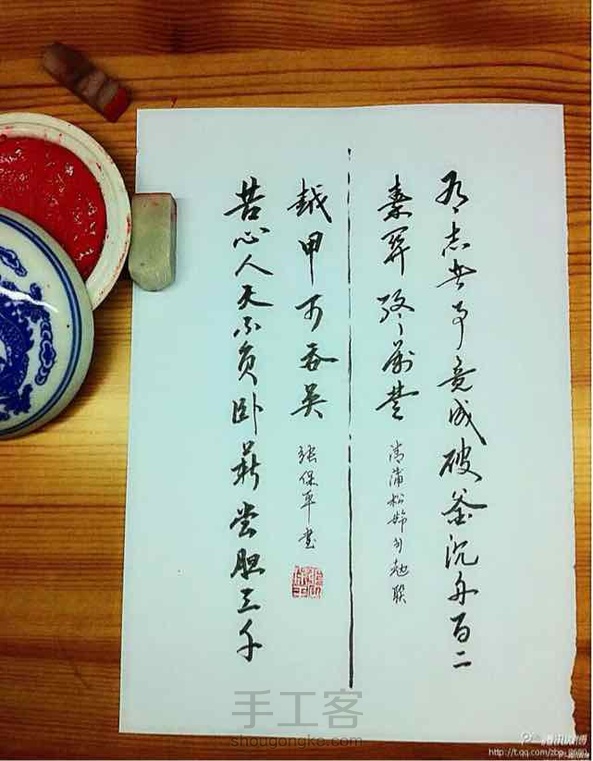 有志者事竟成破釜沉舟百二
秦关终属楚
清蒲松龄自勉联
苦心人天不负卧薪尝胆三千
越甲可吞吴
张保平书
手工客
shougongke.com
腾讯微博